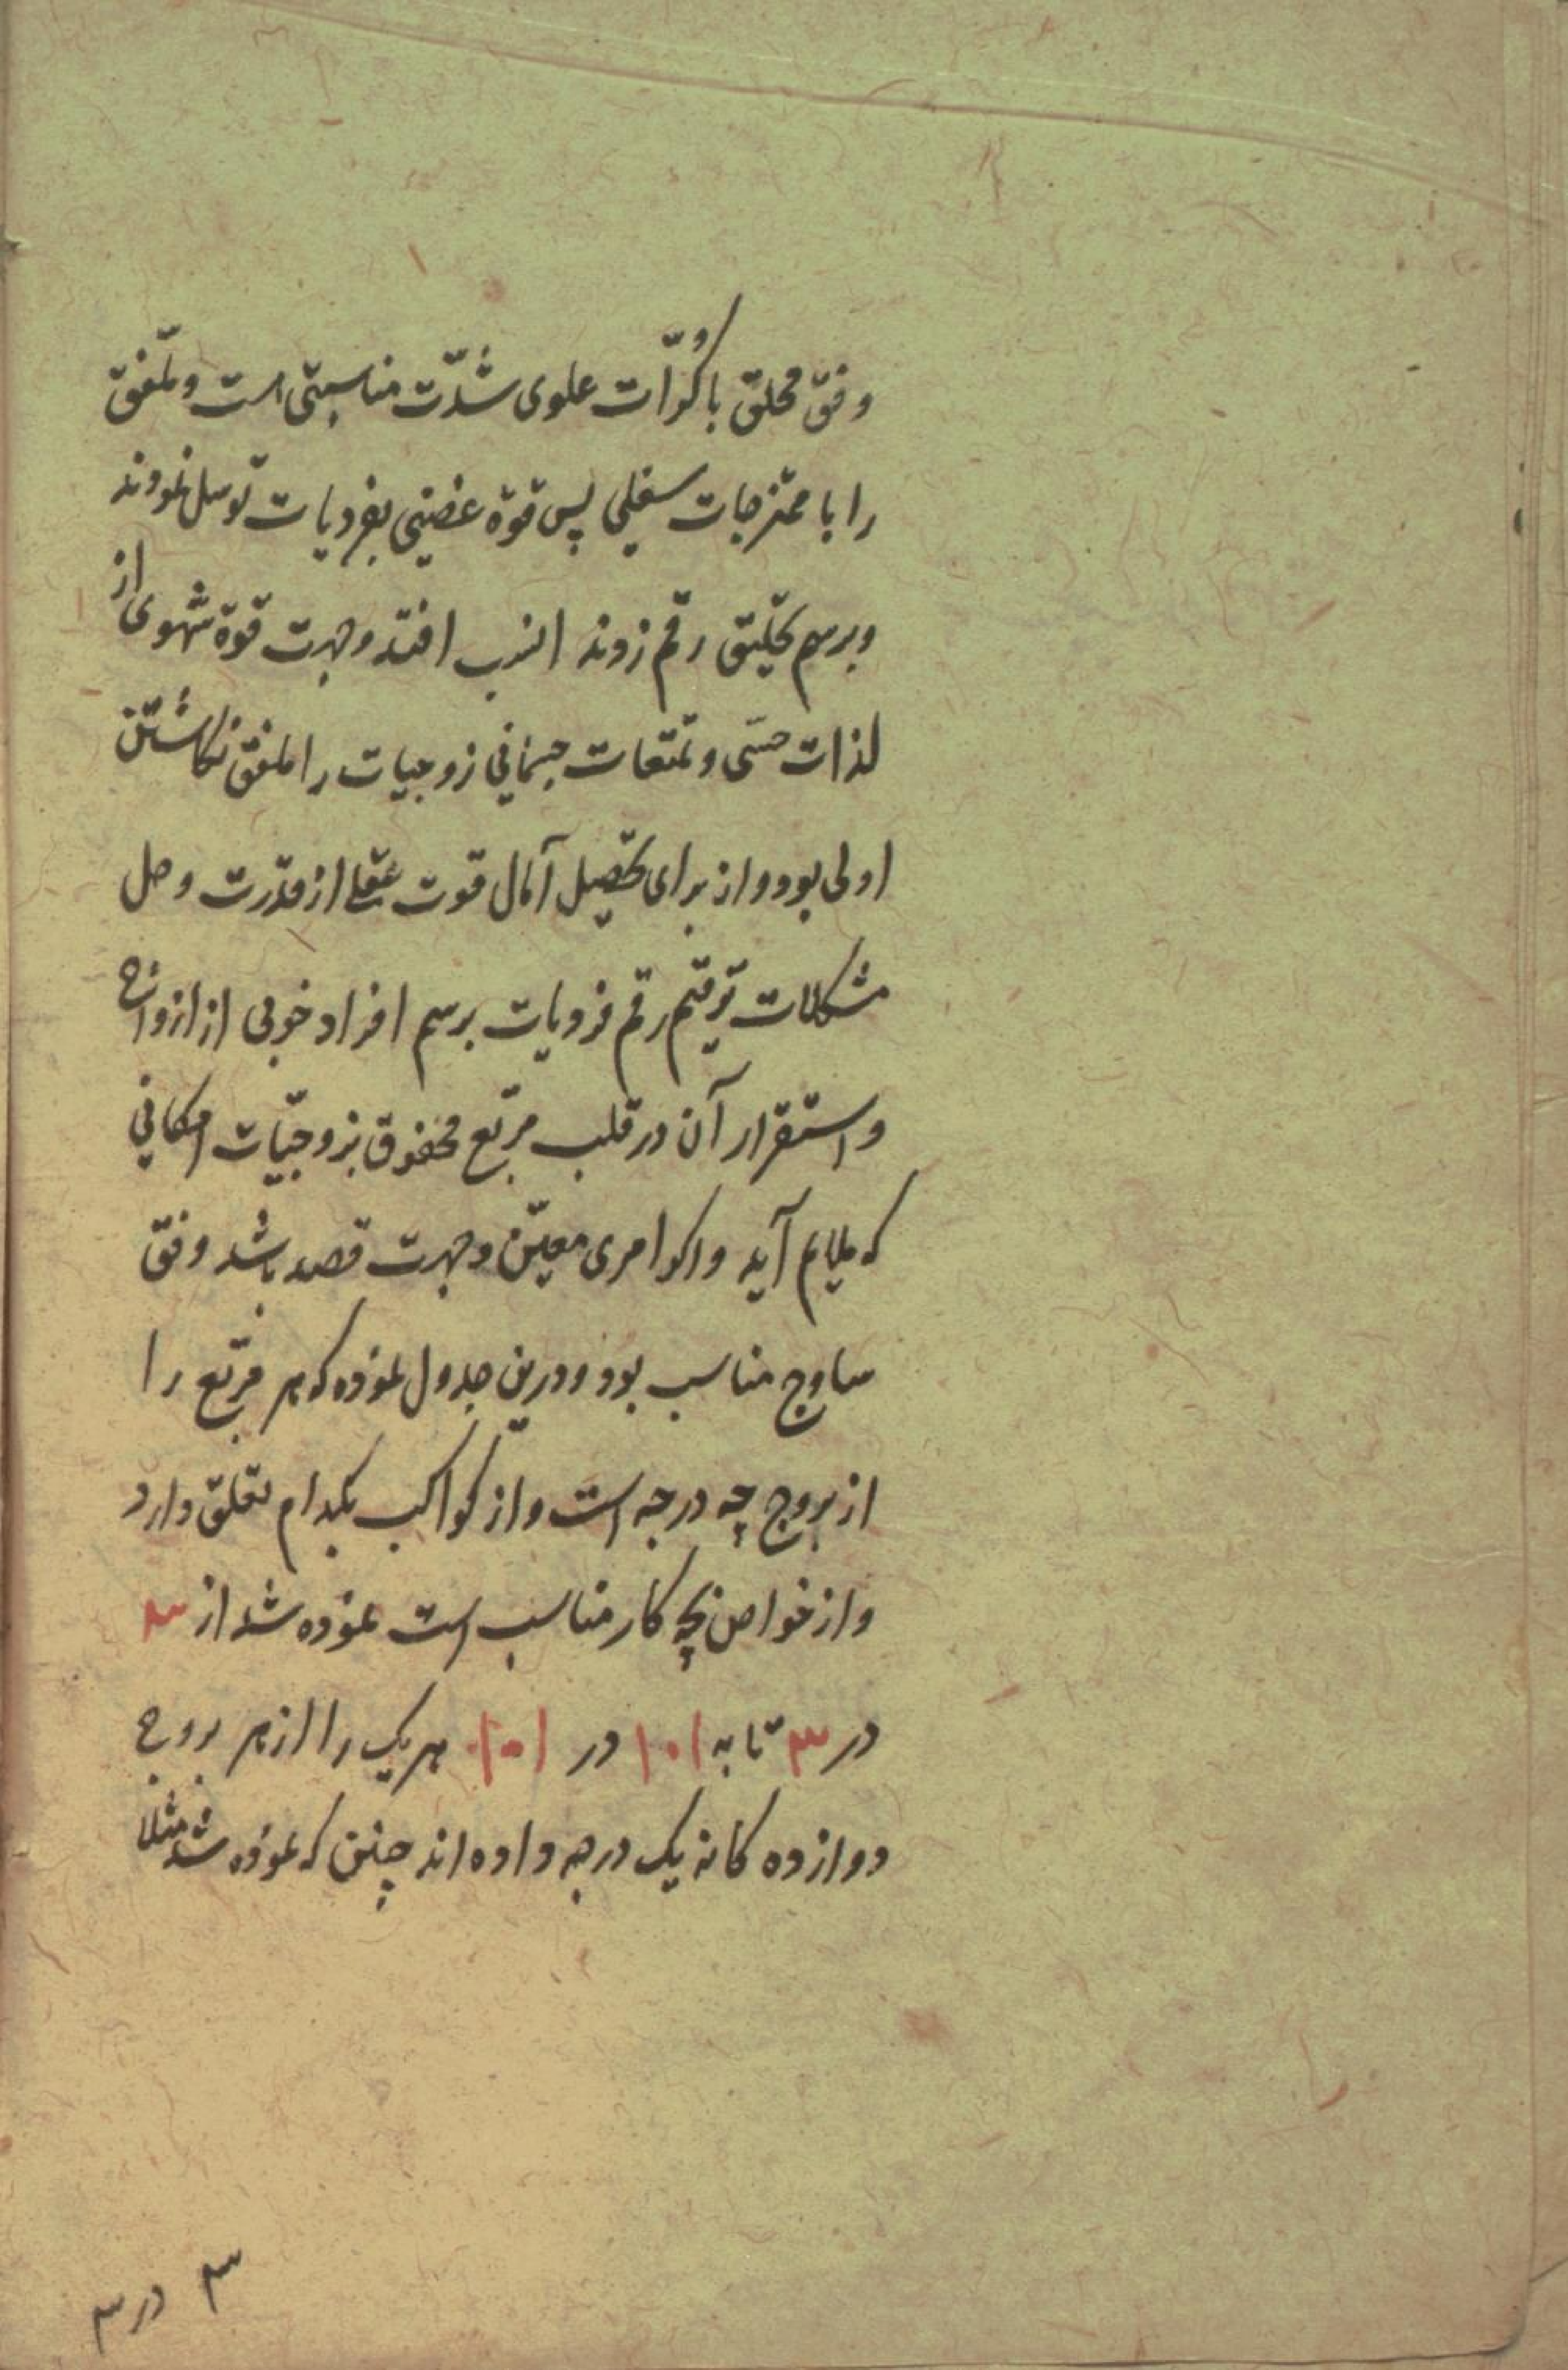 وفق محلق با کُرّات علوی شدّت مناسبتی است و ملفق
را با ممتزجات سفلی پس قوة غضبی بفردیات توسل نمودند
و برسم تحلیق رقم زدند انسب افتد و جهت قوة شهوی از
لذات حسّی و تمتعات جسمانی زوجیات را ملفق نکاشتن
اولی بود و از برای تحصیل آمال قوت عقلی از قدرت و حل
مشکلات ترقیم رقم فردیات برسم افراد خوبی از ازواج
و استقرار آن در قلب مربّع محفوق بزوجیّات امکانی
که ملایم آید و اکر امری معیّن و جهت قصد باشد وفق
ساوج مناسب بود و درین جدول نموده که هر مربّع را
از بروج چه درجه است و از کواکب بکدام تعلق دارد
و از خواص بچه کار مناسب است نموده شد از ۳
در ۳ تا به ۱۰۱ در ۱۰۱ هر یک را از هر بروج
دوازده کانه یک درجه داده اند چنین که نموده شد مثلا
۳ در ۳